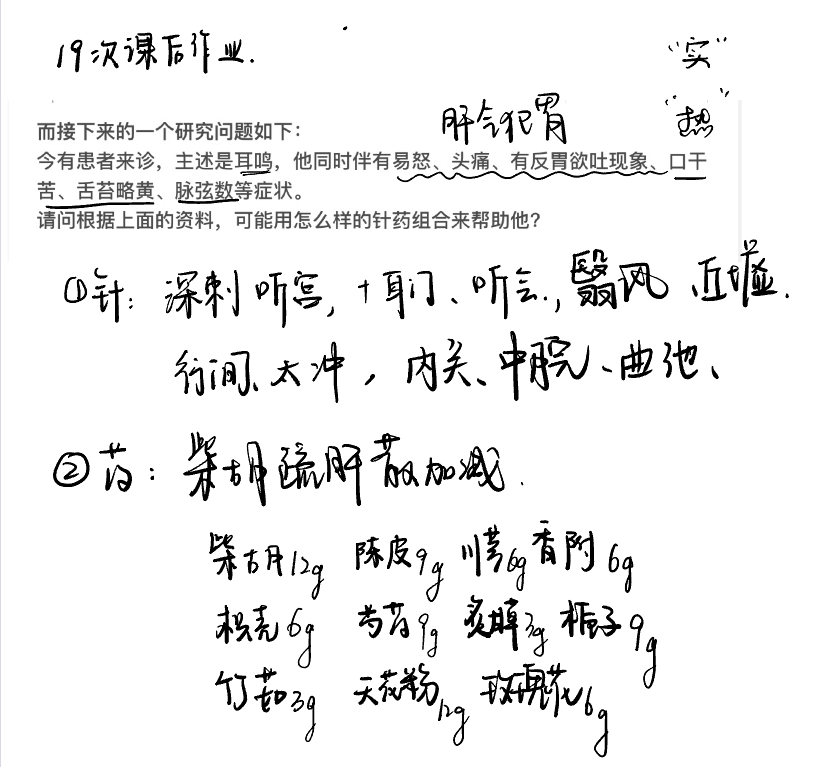 19次课后作业.
"实"
肝气犯胃
"热"
而接下来的一个研究问题如下：
今有患者来诊，主述是耳鸣，他同时伴有易怒、头痛、有反胃欲吐现象、口干
苦、舌苔略黄、脉弦数等症状。
请问根据上面的资料，可能用怎么样的针药组合来帮助他？
①针：深刺听宫，+耳门、听会，翳风、丘墟.
行间、太冲，内关、中脘、曲池、
②药：柴胡疏肝散加减.
柴胡12g 陈皮9g 川芎6g 香附6g
枳壳6g 芍药9g 炙甘草3g 栀子9g
竹茹3g 天花粉12g 玫瑰花6g